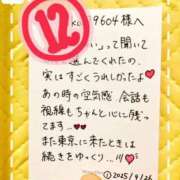 12
9604様へ
い」って聞いて
選んでくれたの、
実はすごくうれしかったよ❤
あの時の空気感、会話も
視線もちゃんと心に残っ
てます...❤❤
また東京に来たときは
続きをゆっくり...!!!
2025/4/26